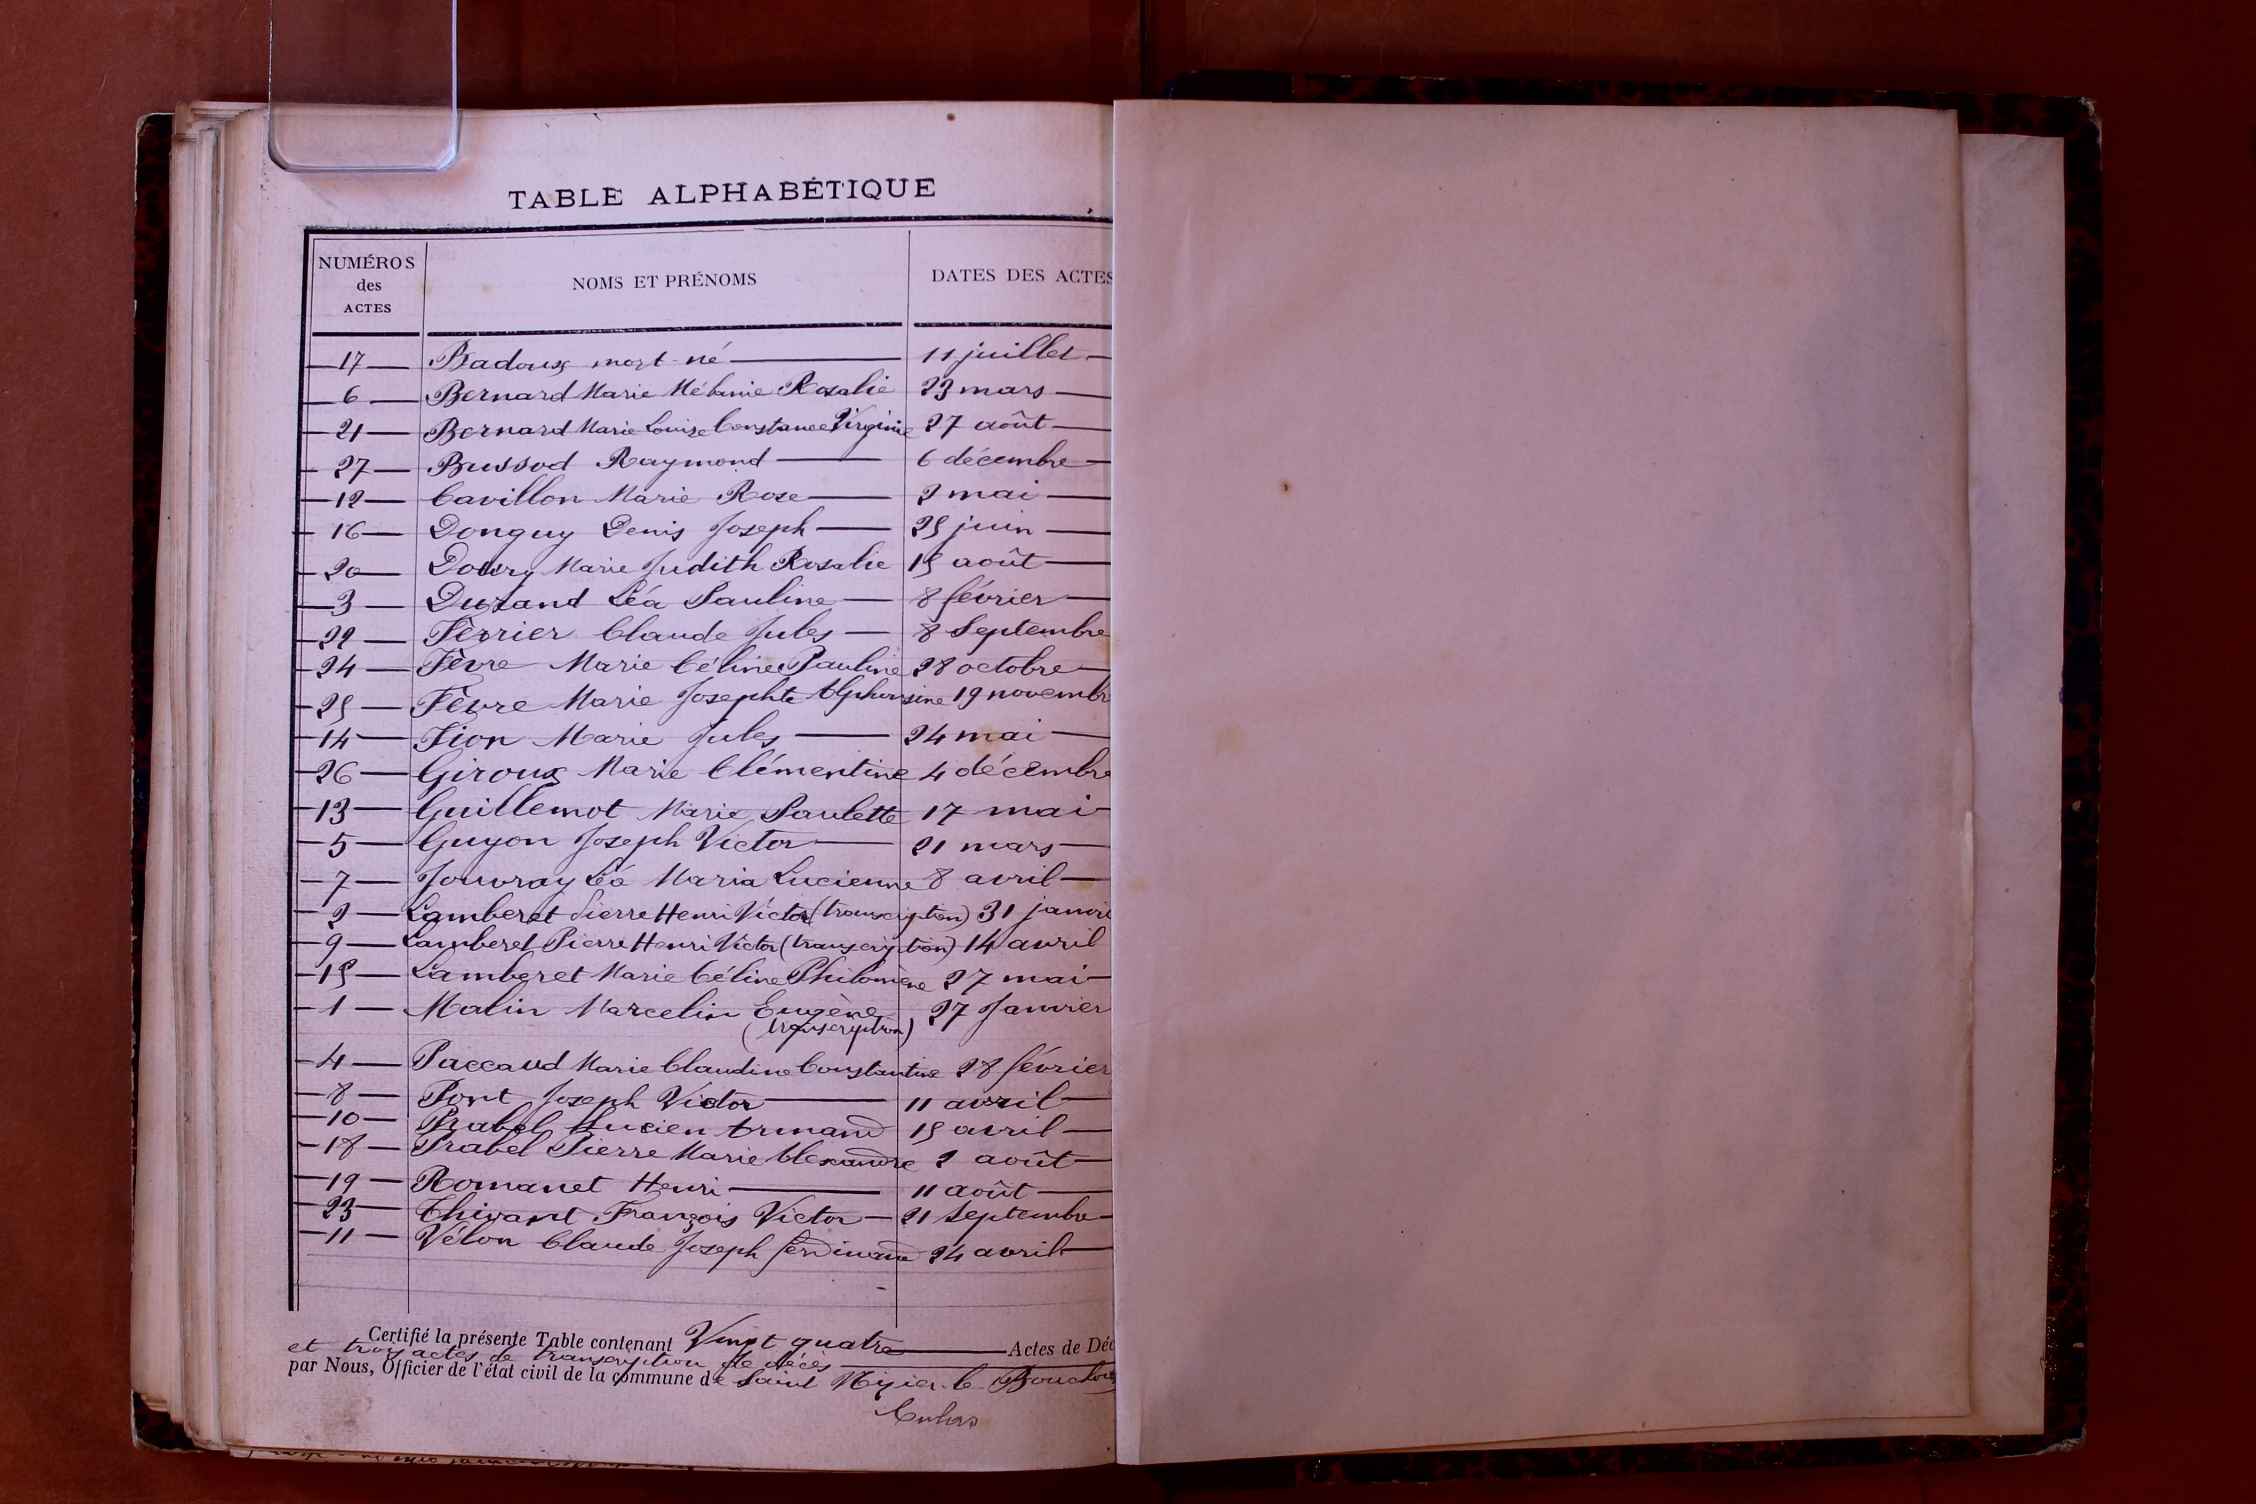 TABLE ALPHABÉTIQUE
NUMÉROS des ACTES NOMS ET PRÉNOMS DATES DES ACTES
17 Badoux mort-né 11 juillet
6 Bernard Marie Mélanie Rosalie 23 mars
21 Bernard Marie Louise Constance Virginie 27 août
27 Bussod Raymond 6 décembre
12 Cavillon Marie Rose 2 mai
16 Donguy Denis Joseph 25 juin
20 Marie Judith Rosalie 15 août
3 Durand Léa Pauline 8 février
22 Fèvrier Claude Jules 8 Septembre
24 Fèvre Marie Céline Pauline 28 octobre
25 Fèvre Marie Josephte Alphonsine 19 novembr
14 Fion Marie Jules 24 mai
26 Giroux Marie Clémentine 4 décembre
13 Guillemot Marie Paulette 17 mai
5 Guyon Joseph Victor 21 mars
7 Jouvray Léa Maria Lucienne 8 avril
2 Lamberet Pierre Henri Victor (transcription) 31 janvi
9 Lamberet Pierre Henri Victor (transcription) 14 avril
15 Lamberet Marie Céline Philomène 27 mai
1 Malin Marcelin Eugène 27 Janvier
(transcription)
4 Paccaud Marie Claudine Constantine 28 février
8 Pont Joseph Victor 11 avril
10 Prabel Lucien Armand 15 avril
18 Prabel Pierre Marie Alexandre 2 août
19 Romanet Henri 11 août
23 Thivant François Victor 21 Septembre
11 Vélon Claude Joseph Ferdinand 24 avril
Certifié la présente Table contenant Vingt quatre Actes de Déc
et trois actes de transcription de décès
par Nous, Officier de l'état civil de la commune de Saint Nizier-le-Bouchoux